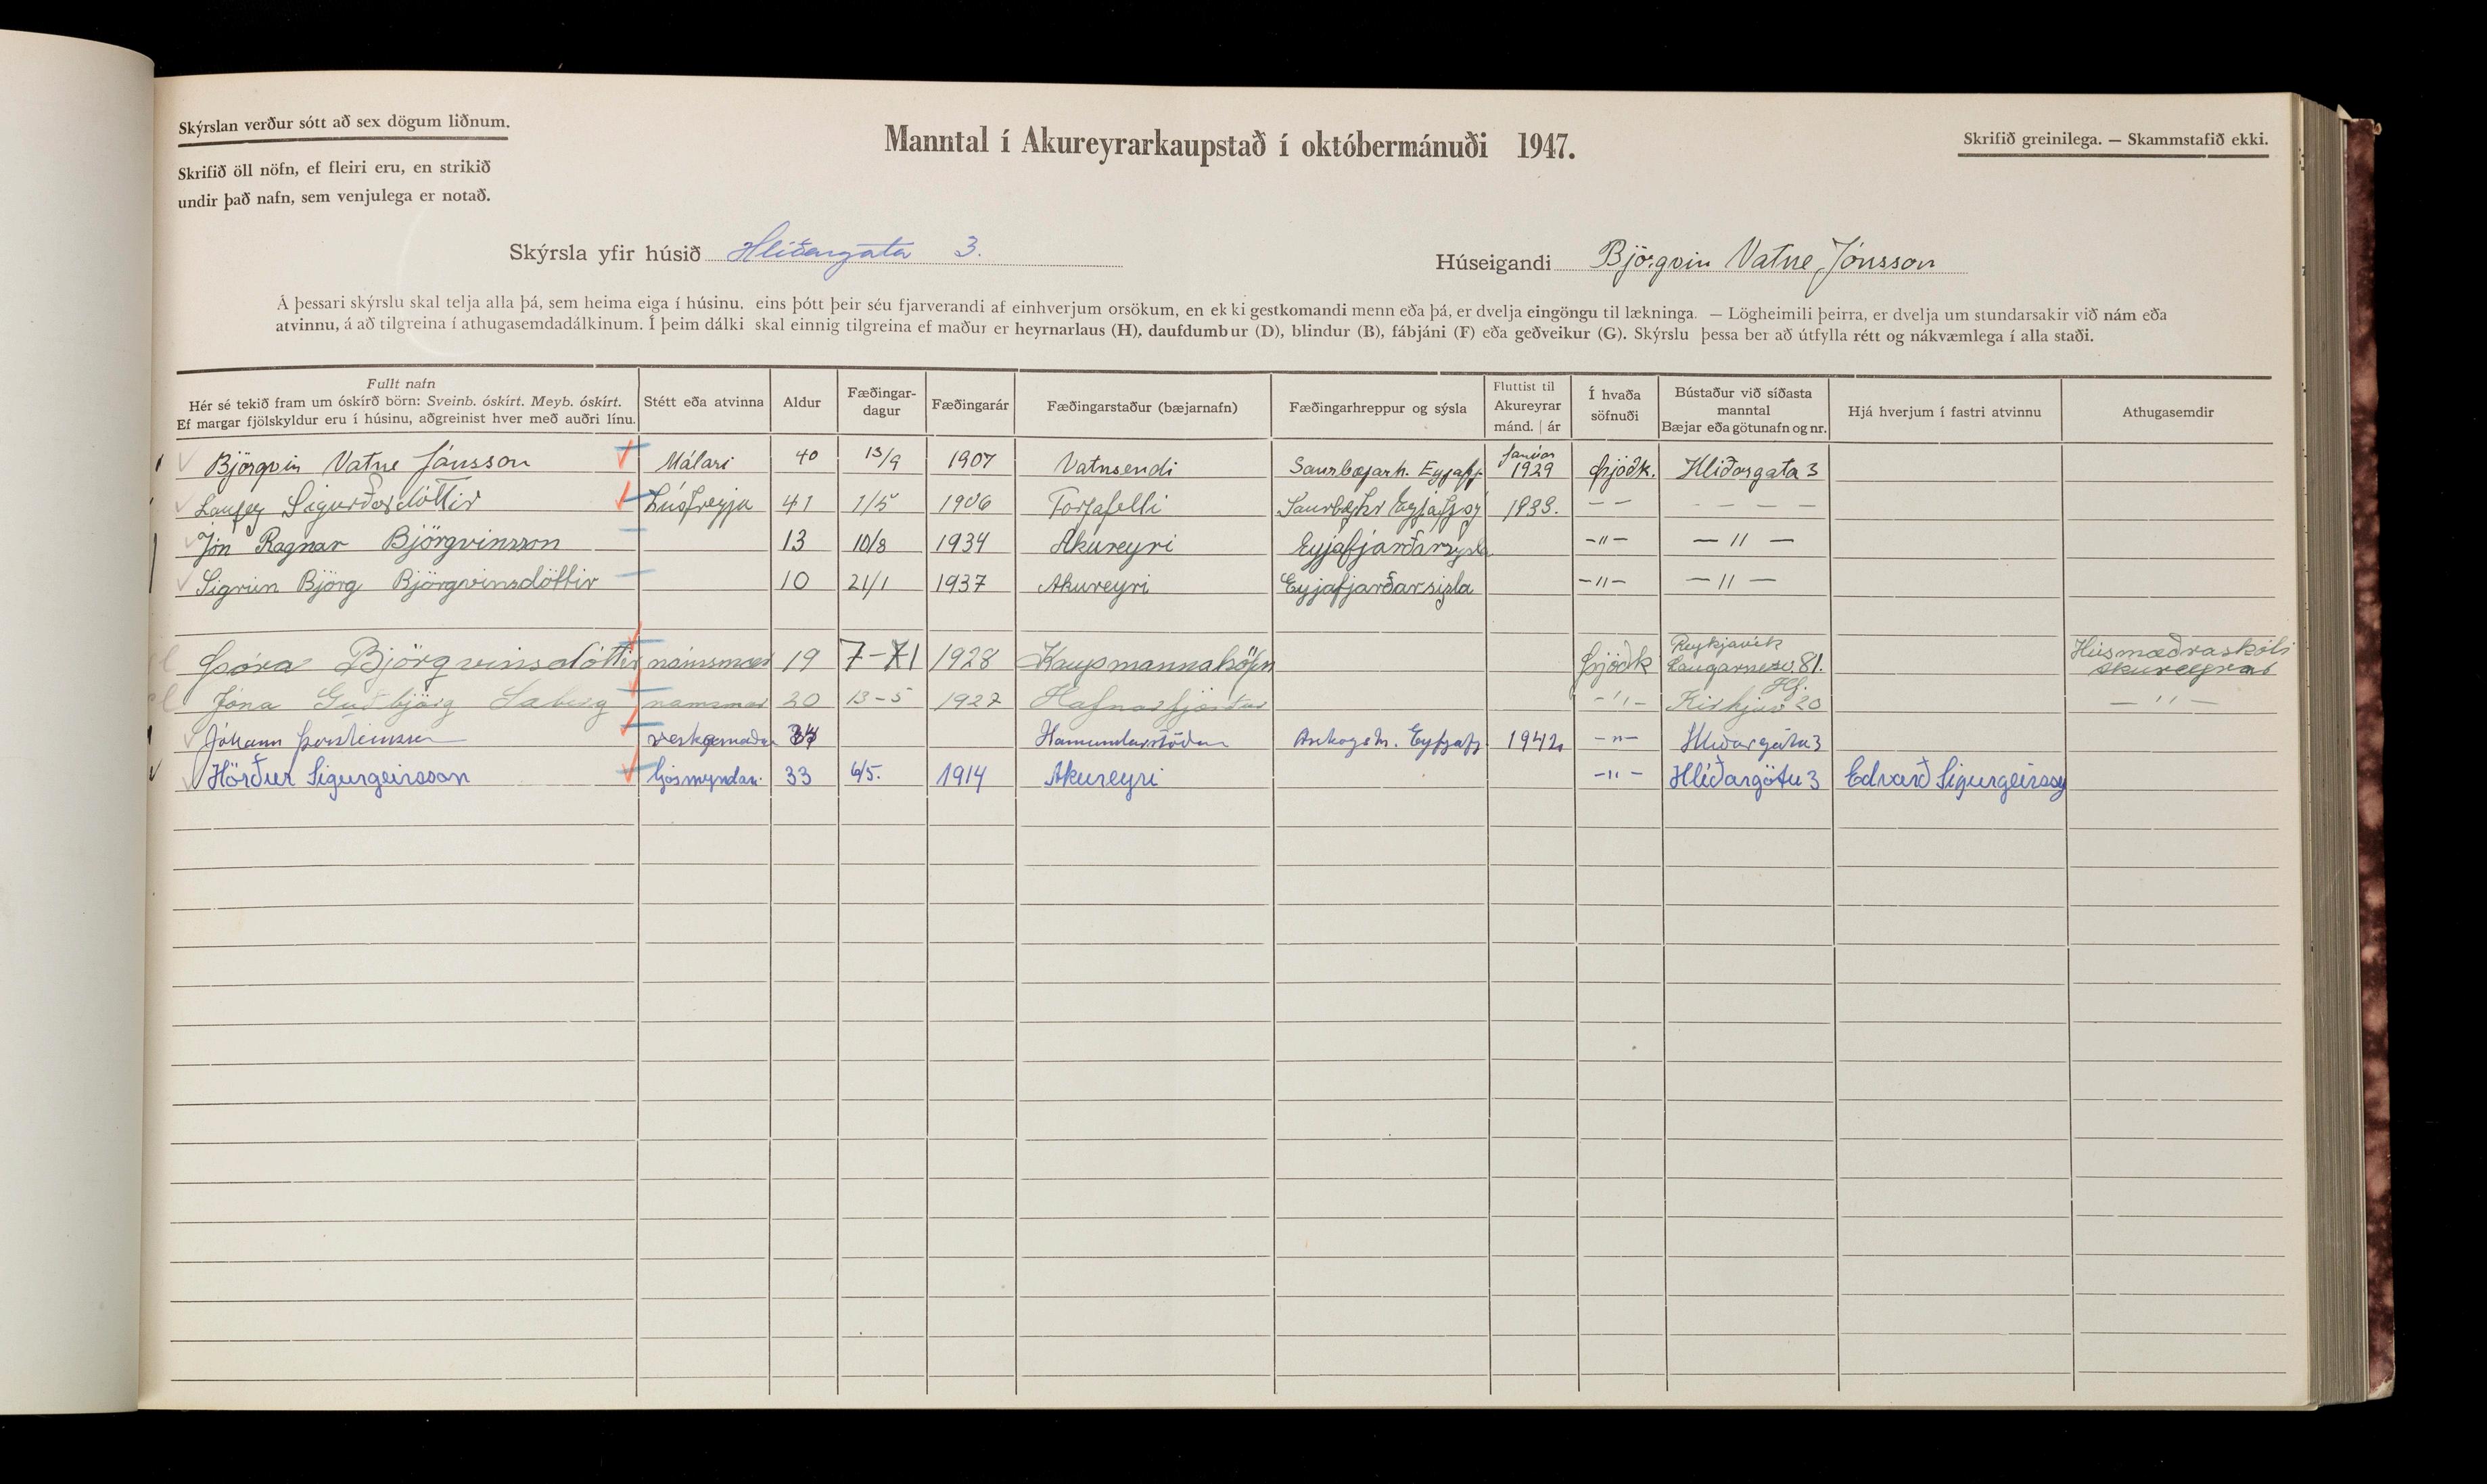 Skýrslan verður sótt að sex dögum liðnum.
Skrifið öll nöfn, ef fleiri eru, en strikið
undir það nafn, sem venjulega er notað.
Manntal í Akureyrarkaupstað í októbermánuði 1947.
Skrifið greinilega. — Skammstafið ekki.
Skýrsla yfir húsið Hlíðargata 3.
Húseigandi Björgvin Vatne Jónsson
Á þessari skýrslu skal telja alla þá, sem heima eiga í húsinu, eins þótt þeir séu fjarverandi af einhverjum orsökum, en ekki gestkomandi menn eða þá, er dvelja eingöngu til lækninga. — Lögheimili þeirra, er dvelja um stundarsakir við nám eða
atvinnu, á að tilgreina í athugasemdadálkinum. Í þeim dálki skal einnig tilgreina ef maður er heyrnarlaus (H), daufdumbur (D), blindur (B), fábjáni (F) eða geðveikur (G). Skýrslu þessa ber að útfylla rétt og nákvæmlega í alla staði.
Fullt nafn
Hér sé tekið fram um óskírð börn: Sveinb. óskírt. Meyb. óskírt.
Ef margar fjölskyldur eru í húsinu, aðgreinist hver með auðri línu.
Stétt eða atvinna
Aldur
Fæðingar-
dagur
Fæðingarár
Fæðingarstaður (bæjarnafn)
Fæðingarhreppur og sýsla
Fluttist til
Akureyrar
mánd. | ár
Í hvaða
söfnuði
Bústaður við síðasta
manntal
Bæjar eða götunafn og nr.
Hjá hverjum í fastri atvinnu
Athugasemdir
Björgvin Vatne Jónsson Málari 40 13/9 1907 Vatnsendi Saurbæjarh. Eyjafj. Janúar 1929 Þjóðk. Hlíðargata 3
Laufey Sigurðardóttir Húsfreyja 41 1/5 1906 Torfafelli 1933. — — — — — —
Jón Ragnar Björgvinsson 13 10/8 1934 Akureyri Eyjafjarðarsysla —"— — " —
Sigrún Björg Björgvinsdóttir 10 21/1 1937 Akureyri Eyjafjarðarsisla —"— — " —
Þóra Björgvinsdóttir námsmær 19 7-XI 1928 Kaupmannahöfn Þjóðk Reykjavík Laugarnesv 81. Húsmæðraskóli Akureyrar
Jóna Guðbjörg námsmær 20 13-5 1927 Hafnarfjörður —"— Hf. Kirkjuv 20 — " —
Jóhann Þorsteinsson verkamaður 34 Hamundarstöðum Eyjafj 1942 —"— Hlíðargötu 3
Hörður Sigurgeirsson ljósmyndari 33 6/5. 1914 Akureyri —"— Hlíðargötu 3 Edvarð Sigurgeirssyni